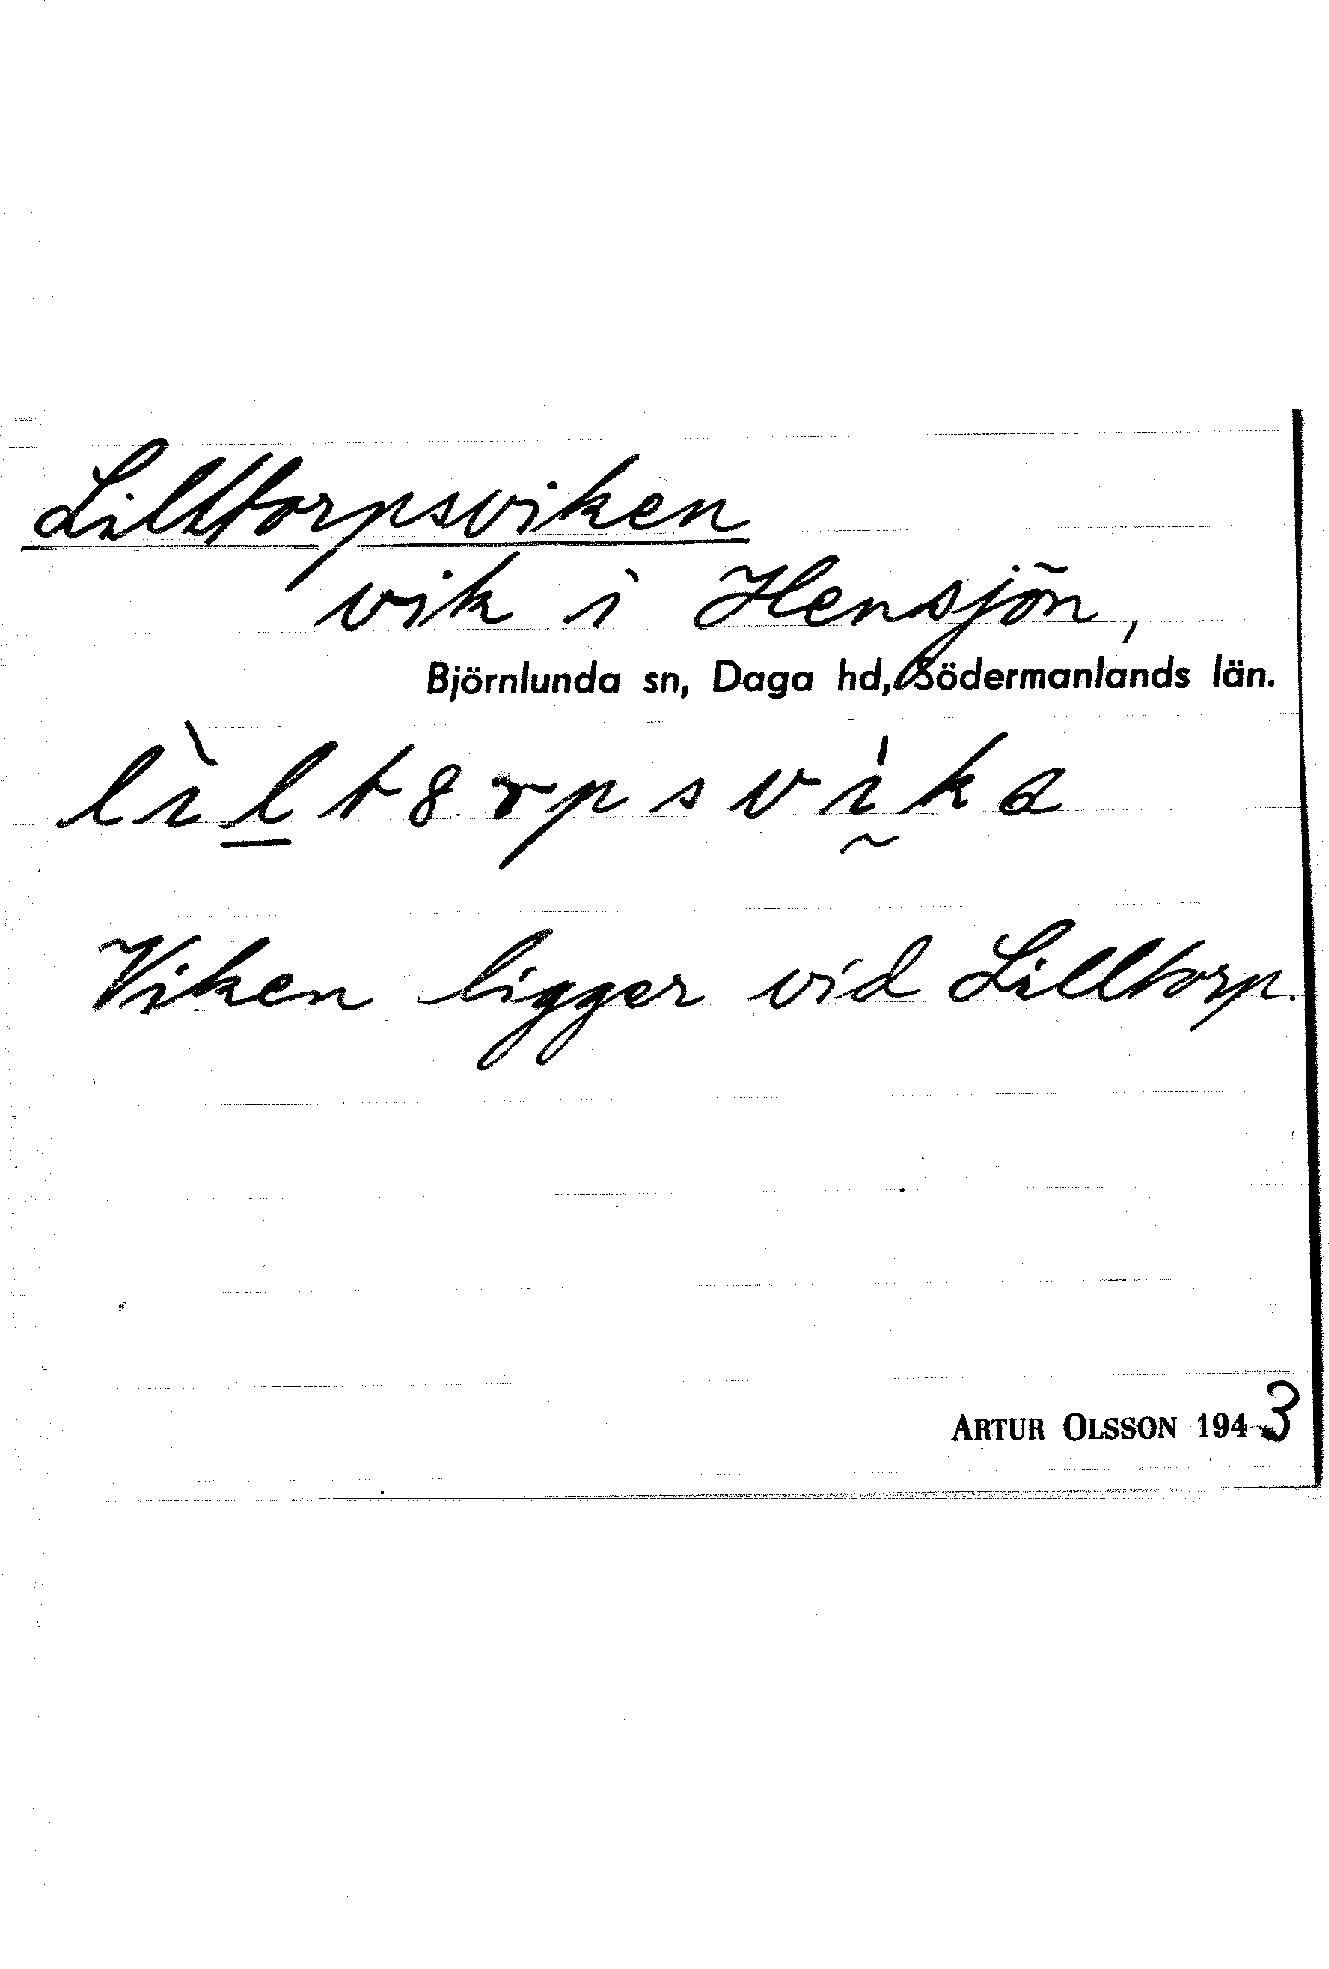 Lilltorpsviken
vik i Hensjön,
Björnlunda sn, Daga hd, Södermanlands län.
lìl̲t8rpsvı̰̍ka
Viken ligger vid Lilltorp.
ARTUR OLSSON 1943